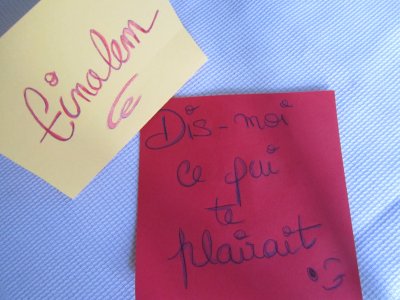 finalem
Dis-moi
ce qui
te
plairait